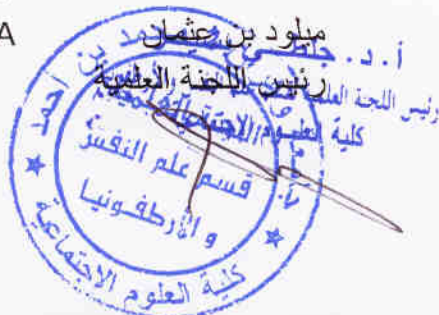 A
ميلود بن عثمان
رئيس اللجنة العلمية
أ.د. جلطي
رئيس اللجنة
كلية العلوم الاجتماعية
بن أحمد
قسم علم النفس
و الأرطفونيا
كلية العلوم الاجتماعية